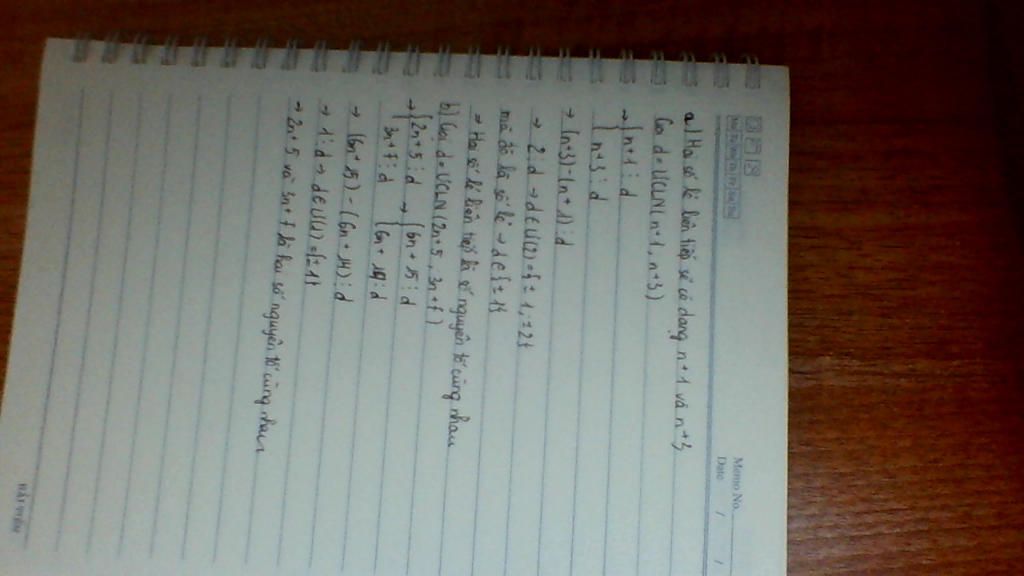 Memo No.
Date / /
Mo Tu We Th Fr Sa Su
a) Hai số lẻ liên tiếp sẽ có dạng n+1 và n+3
Gọi d=ƯCLN(n+1, n+3)
→ { n+1 ⋮ d
{ n+3 ⋮ d
→ (n+3)-(n+1) ⋮ d
→ 2 ⋮ d → d∈Ư(2)={±1,±2}
mà đó là số lẻ → d∈{±1}
→ Hai số lẻ liên tiếp là số nguyên tố cùng nhau
b) Gọi d=ƯCLN(2n+5, 3n+7)
→ { 2n+5 ⋮ d → { 6n+15 ⋮ d
{ 3n+7 ⋮ d { 6n+14 ⋮ d
→ (6n+15)-(6n+14) ⋮ d
→ 1 ⋮ d → d∈Ư(1)={±1}
→ 2n+5 và 3n+7 là hai số nguyên tố cùng nhau
HẢI TIẾN